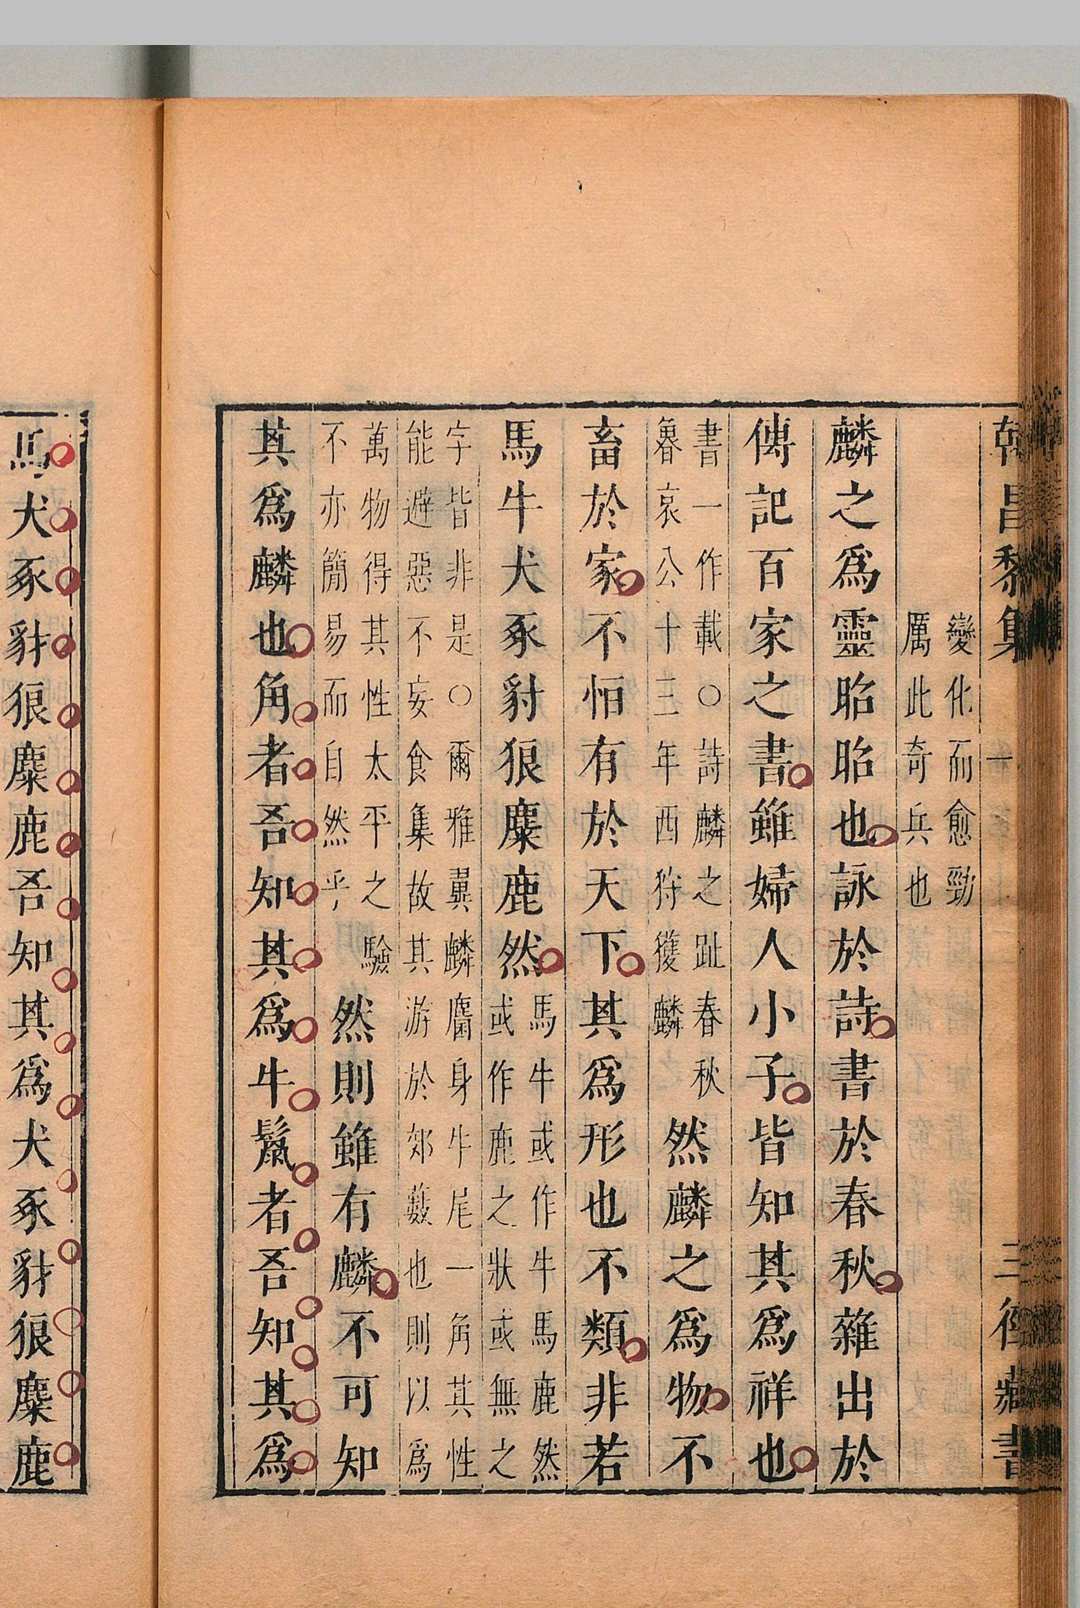 韓昌黎集 卷一 三徑藏書
變化而愈勁
厲此奇兵也
麟之爲靈昭昭也詠於詩書於春秋雜出於
傳記百家之書雖婦人小子皆知其爲祥也
書一作載○詩麟之趾春秋
魯哀公十三年西狩獲麟
然麟之爲物不
畜於家不怕有於天下其爲形也不類非若
馬牛犬豕豺狼麋鹿然
馬牛或作牛馬鹿然
或作鹿之狀或無之
字皆非是○爾雅翼麟麕身牛尾一角其性
能避惡不妄食集故其游於郊藪也則以爲
萬物得其性太平之驗
不亦簡易而自然乎
然則雖有麟不可知
其爲麟也角者吾知其爲牛鬣者吾知其爲
馬犬豕豺狼麋鹿吾知其爲犬豕豺狼麋鹿